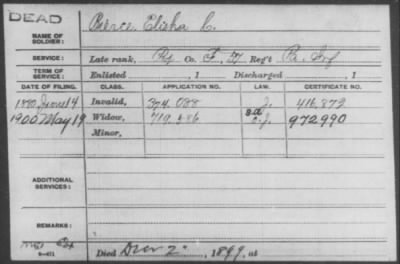 DEAD
NAME OF SOLDIER: Pierce, Elisha C.
SERVICE: Late rank, Co. F, Reg't Inf
TERM OF SERVICE: Enlisted , 1 Discharged , 1
DATE OF FILING. CLASS. APPLICATION NO. LAW. CERTIFICATE NO.
1880, June 14 Invalid, 374.088 416.872
1900 May 19 Widow, 719.586 972990
Minor,
ADDITIONAL SERVICES:
REMARKS:
Died 2, 1899, at